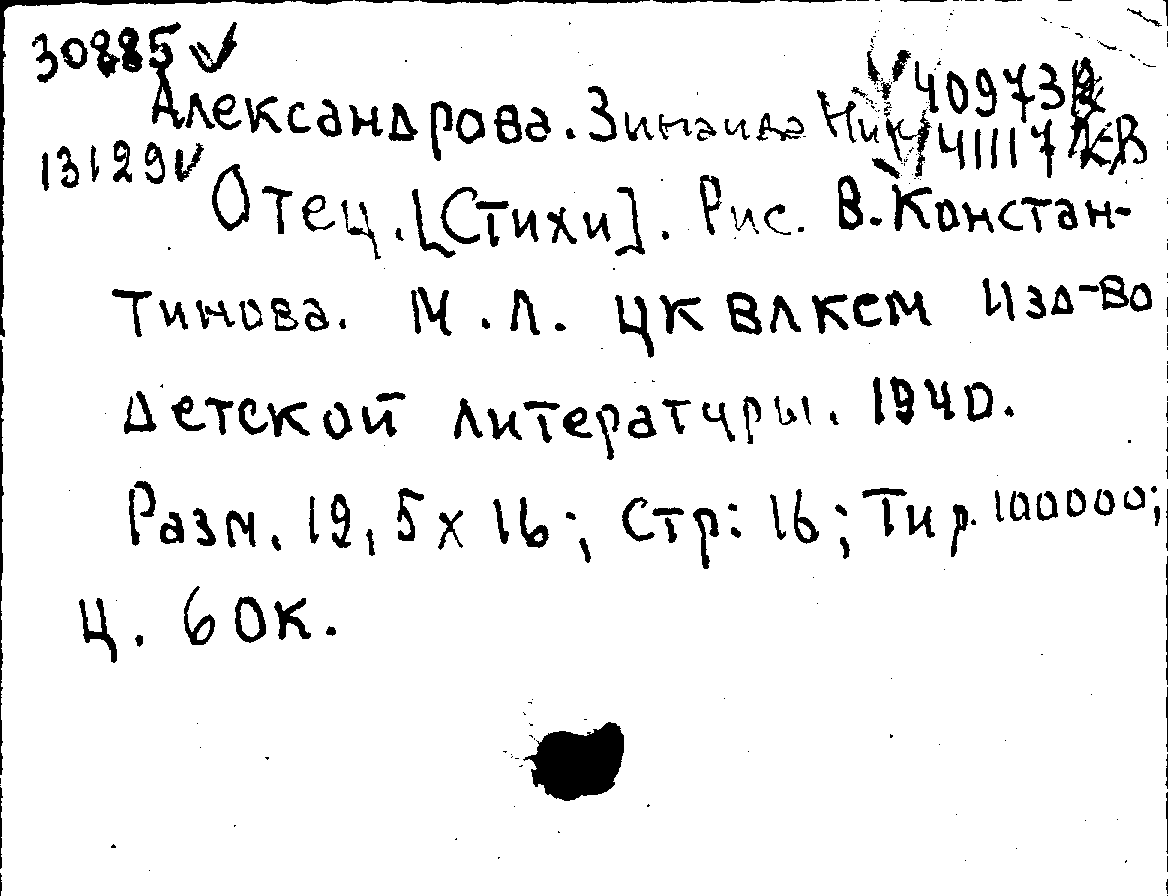 30885 V
Александрова. Зинаида Ник V 40973
13129 V 41117
Отец. [Стихи]. Рис. В. Констан-
тинова. М. Л. ЦК ВЛКСМ Изд-во
Детской литературы. 1940.
Разм. 12,5 х 16; Стр: 16; Тир. 100000;
Ц. 60к.